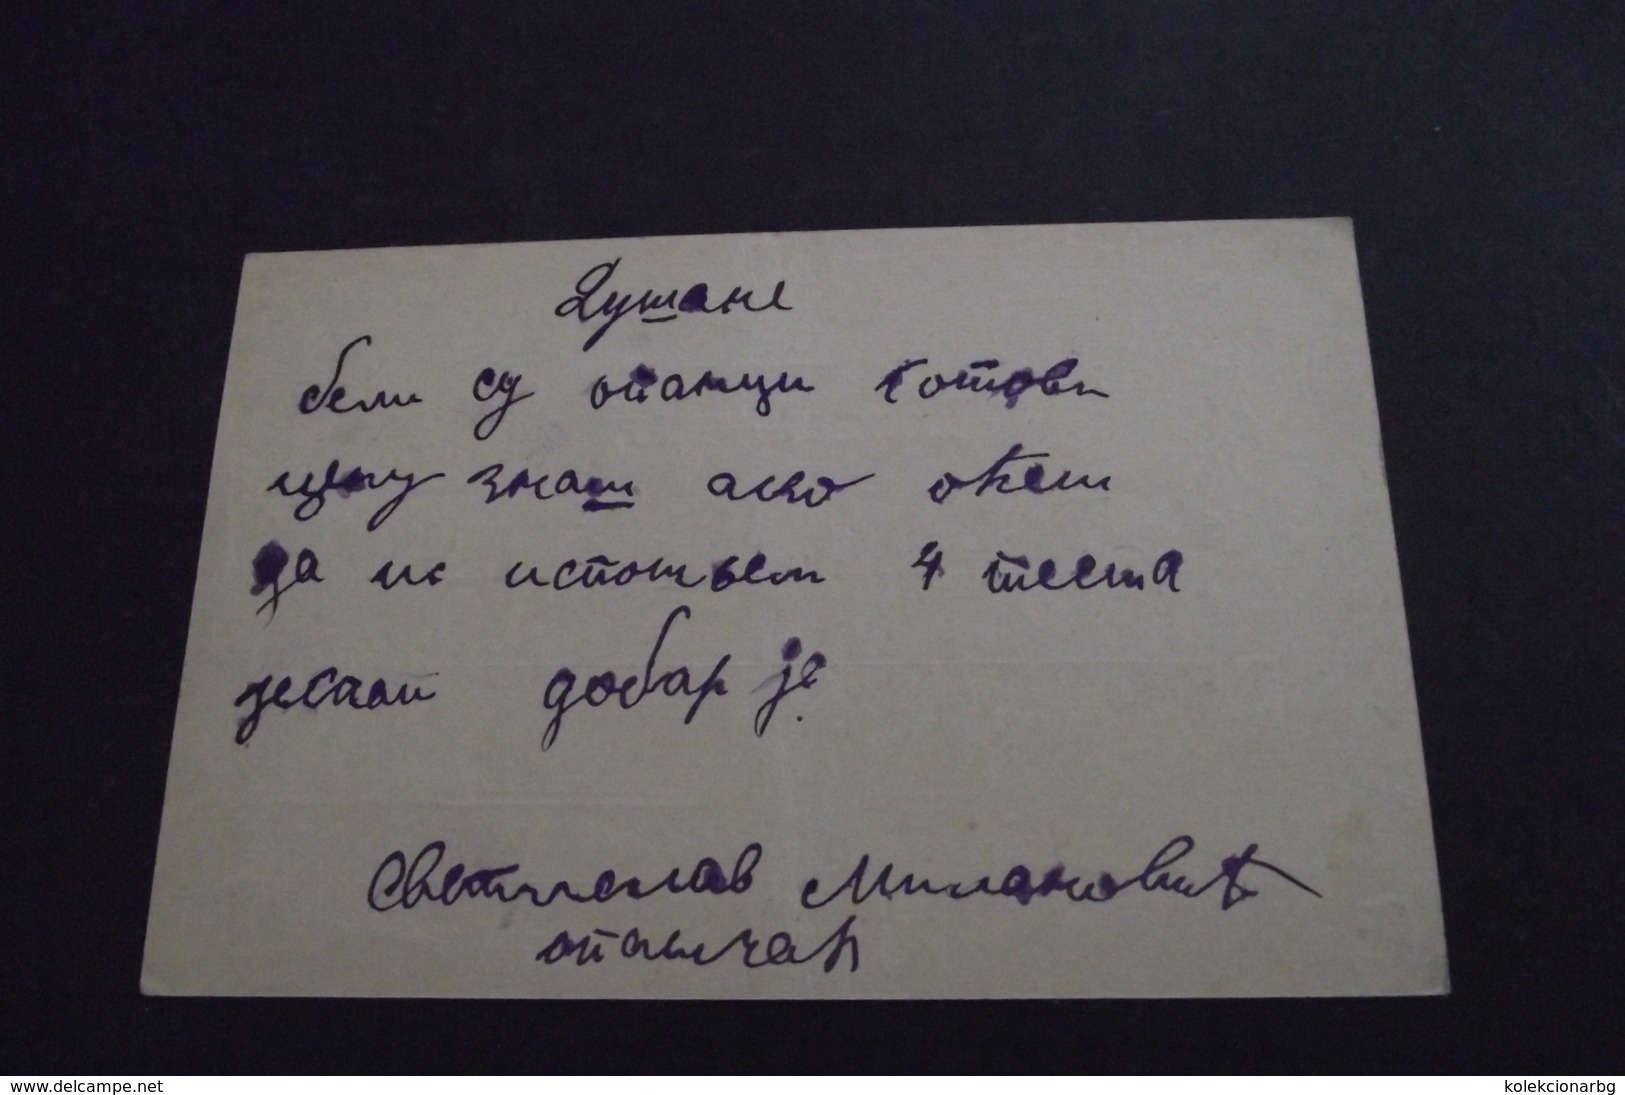 Душане
бели су опанци готови
цену знаш ако оћеш
да ик испошљем 4 теста
јесали добар је
Светислав Милановић
опанчар
www.delcampe.net
kolekcionarbg